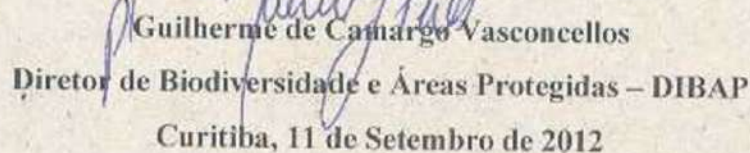 Guilherme de Camargo Vasconcellos
Diretor de Biodiversidade e Áreas Protegidas – DIBAP
Curitiba, 11 de Setembro de 2012